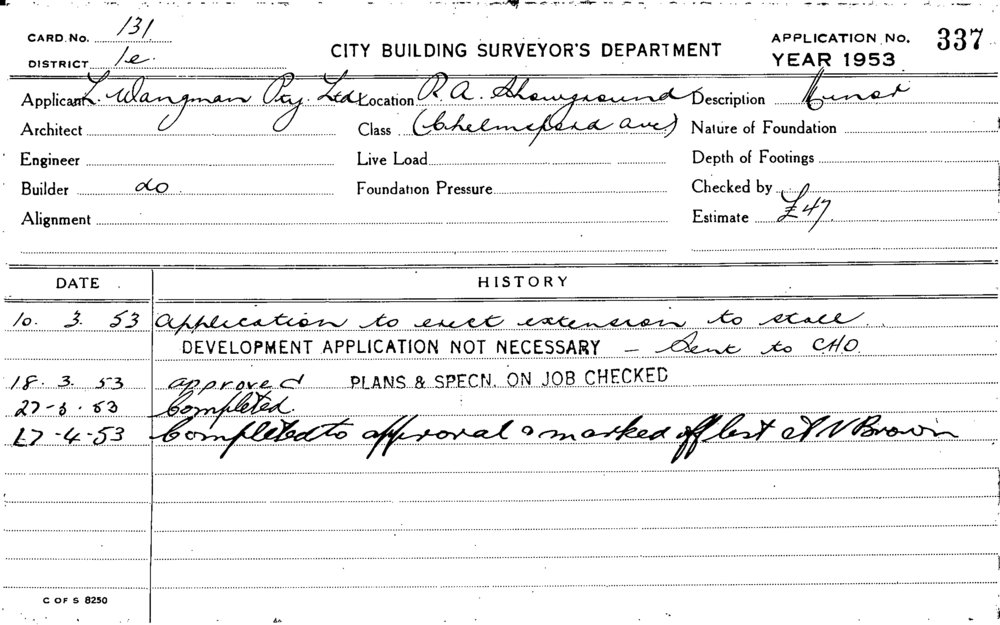 CARD No. 131
DISTRICT 1e.
CITY BUILDING SURVEYOR'S DEPARTMENT
APPLICATION No. 337
YEAR 1953
Applicant L. Wangman Pty. Ltd. Location R.A. Showground Description Minor
Architect Class (Chelmsford Ave) Nature of Foundation
Engineer Live Load Depth of Footings
Builder do Foundation Pressure Checked by
Alignment Estimate £47
DATE HISTORY
10. 3. 53 Application to erect extension to stall.
DEVELOPMENT APPLICATION NOT NECESSARY – Sent to CHO.
18. 3. 53 approved PLANS & SPECN. ON JOB CHECKED
27-3.53 Completed.
27-4-53 Completed to approval & marked off list Brown
C OF S 8250